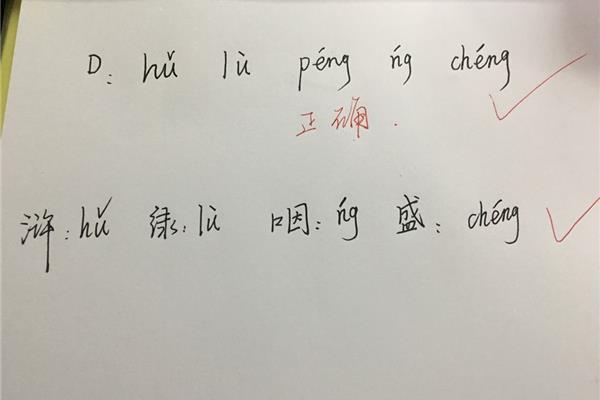 D: hǔ lù péng ńg chéng
正确.
浒:hǔ 绿:lù 咽:ńg 盛:chéng